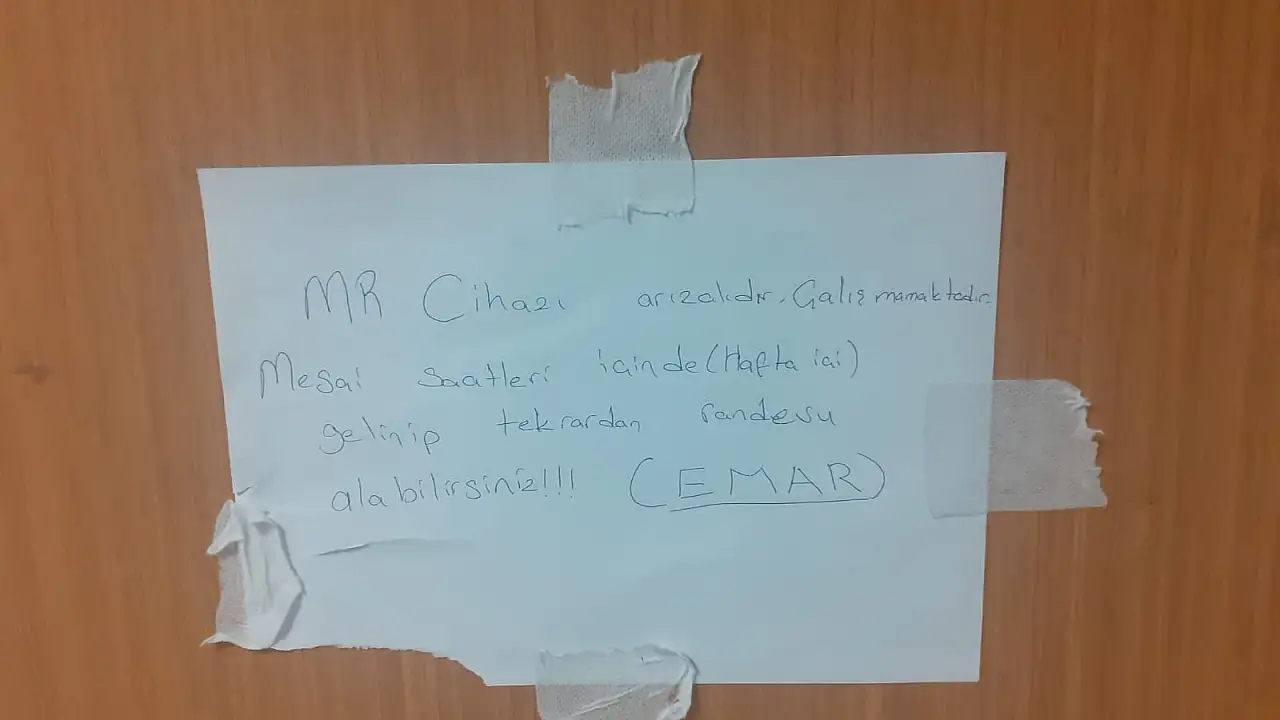 MR Cihazı arızalıdır. Çalışmamaktadır.
Mesai saatleri içinde (Hafta içi)
gelinip tekrardan randevu
alabilirsiniz!!! (EMAR)